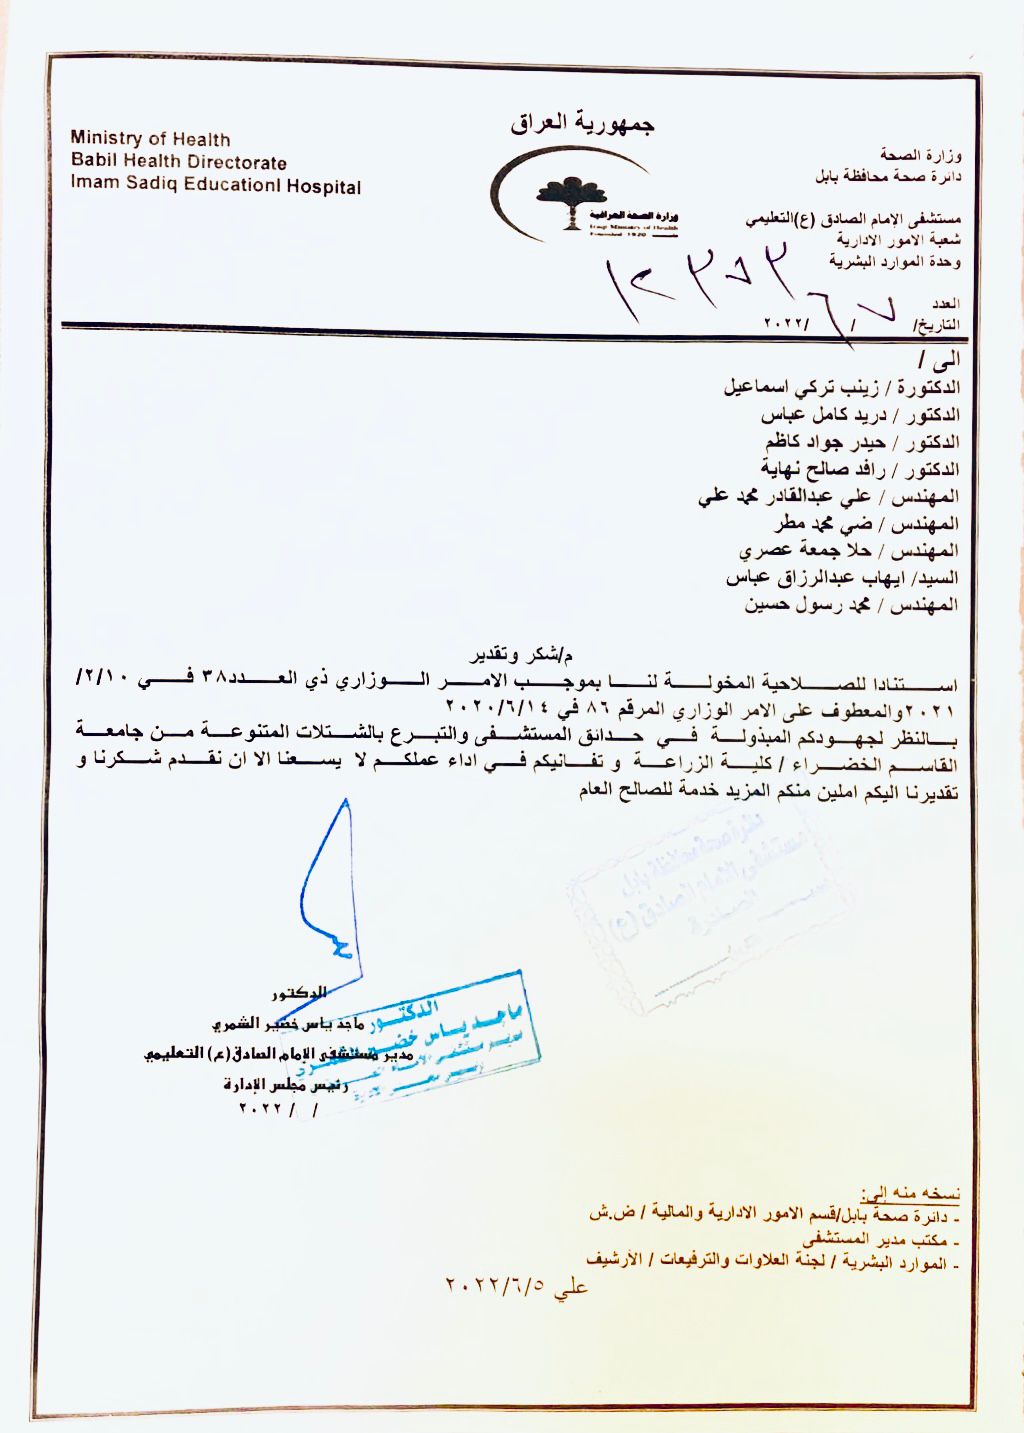 جمهورية العراق
Ministry of Health
Babil Health Directorate
Imam Sadiq Educationl Hospital
وزارة الصحة العراقية
Iraqi Ministry of Health
Founded 1920
وزارة الصحة
دائرة صحة محافظة بابل
مستشفى الإمام الصادق (ع)التعليمي
شعبة الامور الادارية
وحدة الموارد البشرية
العدد
التاريخ/ ٧ / ٦ /٢٠٢٢
الى /
الدكتورة / زينب تركي اسماعيل
الدكتور / دريد كامل عباس
الدكتور / حيدر جواد كاظم
الدكتور / رافد صالح نهاية
المهندس / علي عبدالقادر محمد علي
المهندس / ضي محمد مطر
المهندس / حلا جمعة عصري
السيد/ ايهاب عبدالرزاق عباس
المهندس / محمد رسول حسين
م/شكر وتقدير
استنادا للصلاحية المخولة لنا بموجب الامر الوزاري ذي العدد٣٨ في ٢/١٠/
٢٠٢١والمعطوف على الامر الوزاري المرقم ٨٦ في ٢٠٢٠/٦/١٤
بالنظر لجهودكم المبذولة في حدائق المستشفى والتبرع بالشتلات المتنوعة من جامعة
القاسم الخضراء / كلية الزراعة و تفانيكم في اداء عملكم لا يسعنا الا ان نقدم شكرنا و
تقديرنا اليكم املين منكم المزيد خدمة للصالح العام
مستشفى الامام الصادق (ع)
الدكتور
ماجد ياس خضير الشمري
مدير مستشفى الإمام الصادق (ع) التعليمي
رئيس مجلس الإدارة
/ / ٢٠٢٢
الدكتور
ماجد ياس خضير الشمري
نسخه منه إلى:
- دائرة صحة بابل/قسم الامور الادارية والمالية / ض.ش
- مكتب مدير المستشفى
- الموارد البشرية / لجنة العلاوات والترفيعات / الأرشيف
علي ٢٠٢٢/٦/٥